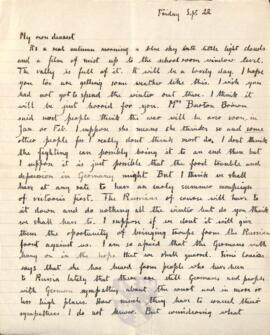 Friday Sept 22
My own dearest
It's a real autumn morning a blue sky dark little light clouds
and a film of mist up to the schoolroom window level.
The valley is full of it. It will be a lovely day. I hope
you too are getting some weather like this. I wish you
had not got to spend the winter out there. I think it
will be just horrid for you. Mrs Burton Brown
said most people think the war will be over soon, in
Jan or Feb. I suppose she means she thinks so and some
other people for I really don't think most do, I don't think
the fighting can possibly bring it to an end then but
I suppose it is just possible that the food trouble and
depression in Germany might But I think we shall
have at any rate to have an early summer campaign
of victories first. The Russians of course will have to
sit down and do nothing all the winter but do you think
we shall have to. I suppose if we do it will give
them the opportunity of bringing troops from the Russian
front against us. I am so afraid that the Germans will
hang on in the hope that we shall quarrel.
says that she has heard from people who have been
to Russia lately that there are still Germans and people
with German sympathies about the court and in more or
less high places. How much they have to conceal their
sympathies I do not know. But considering what